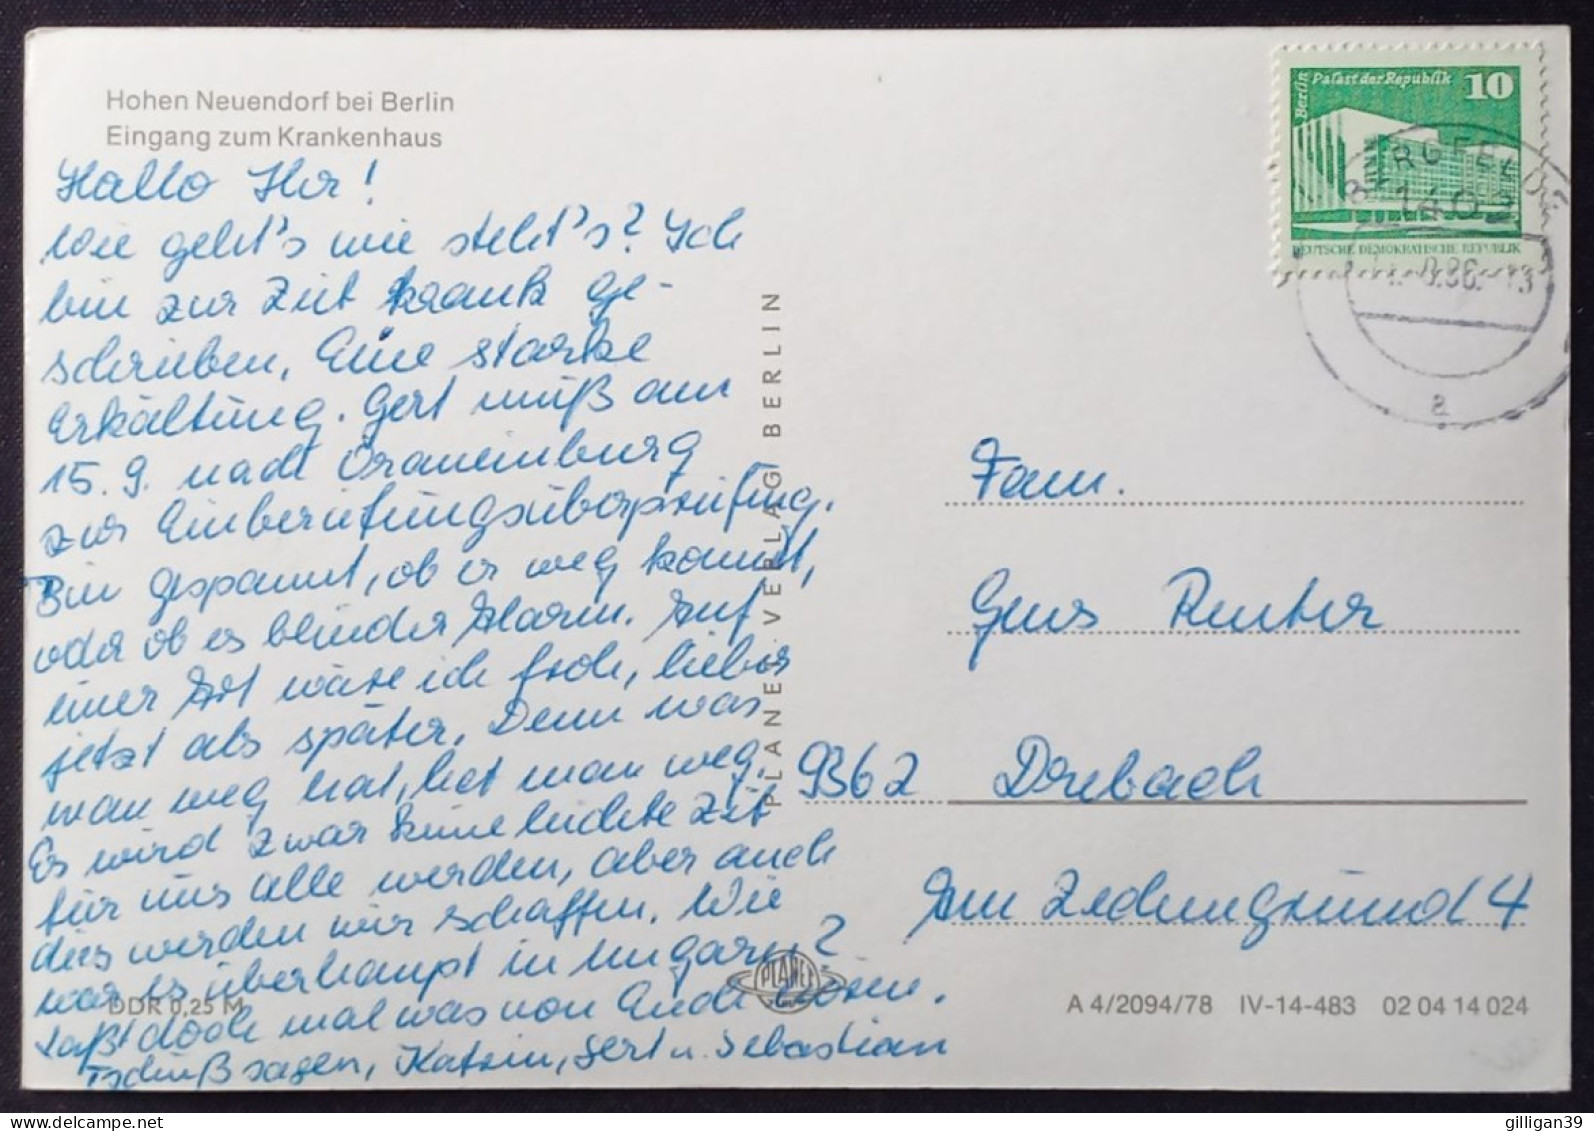 Hohen Neuendorf bei Berlin
Eingang zum Krankenhaus
Hallo Ihr!
Wie geht's wie steht's? Ich
bin zur Zeit krank ge-
schrieben. Eine starke
Erkältung. Gert muß am
15. 9. nach Oranienburg
zur Einberufungsüberprüfung.
Bin gespannt, ob er weg kommt,
oder ob es blinder Alarm. Auf
einer Art wäre ich froh, lieber
jetzt als später. Denn was
man weg hat, hat man weg.
Es wird zwar keine leichte Zeit
für uns alle werden, aber auch
dies werden wir schaffen. Wie
war es überhaupt in Ungarn?
Laßt doch mal was von Euch hören.
Tschüß sagen, Katrin, Gert u. Sebastian
DDR 0,25 M
PLANET-VERLAG BERLIN
PLANET
Berlin
Palast der Republik 10
DEUTSCHE DEMOKRATISCHE REPUBLIK
BERGFELDE
1402
.86.-13
a
Fam.
Reuter
9362 Drebach
Am Zechengrund 4
A 4/2094/78 IV-14-483 02 04 14 024
gilligan39